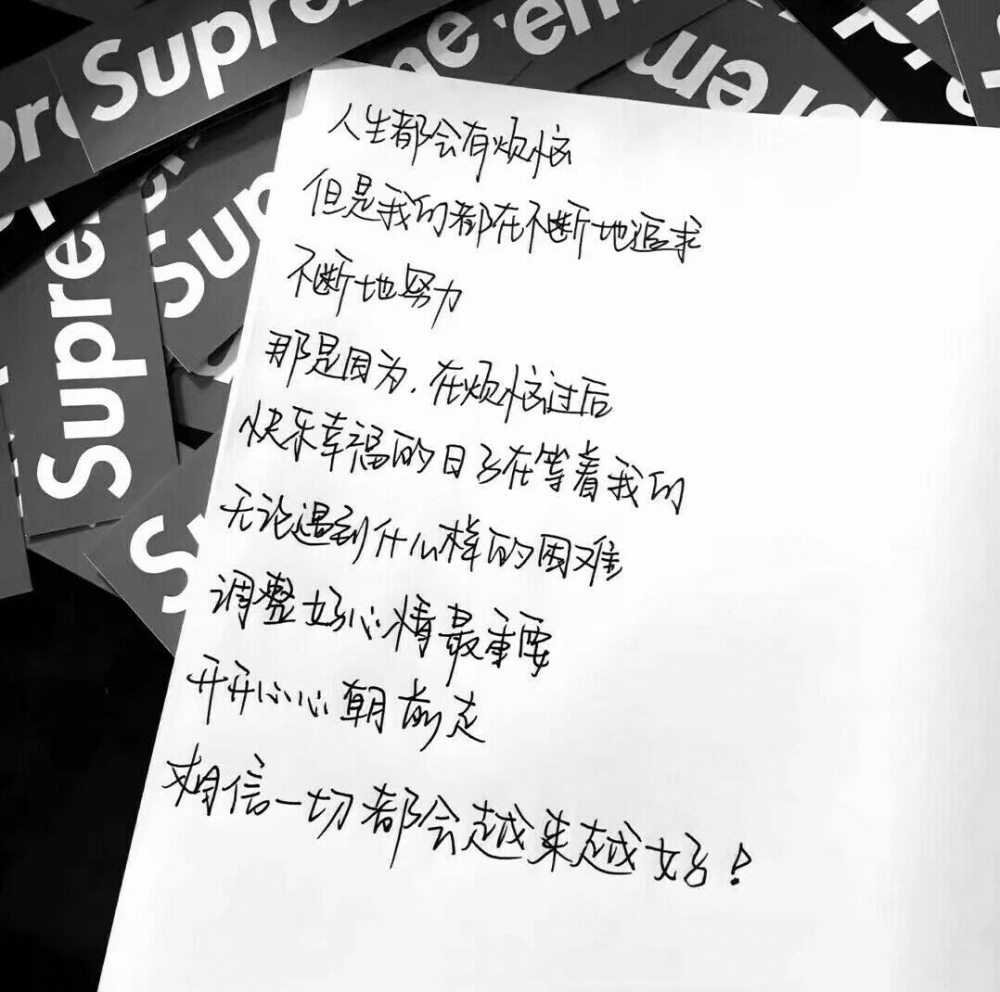 Supre
me
'em
prem
pre
Supreme
Sup
Supreme
S
人生都会有烦恼
但是我们都在不断地追求
不断地努力
那是因为,在烦恼过后
快乐幸福的日子在等着我们
无论遇到什么样的困难
调整好心情最重要
开开心心朝前走
相信一切都会越来越好!